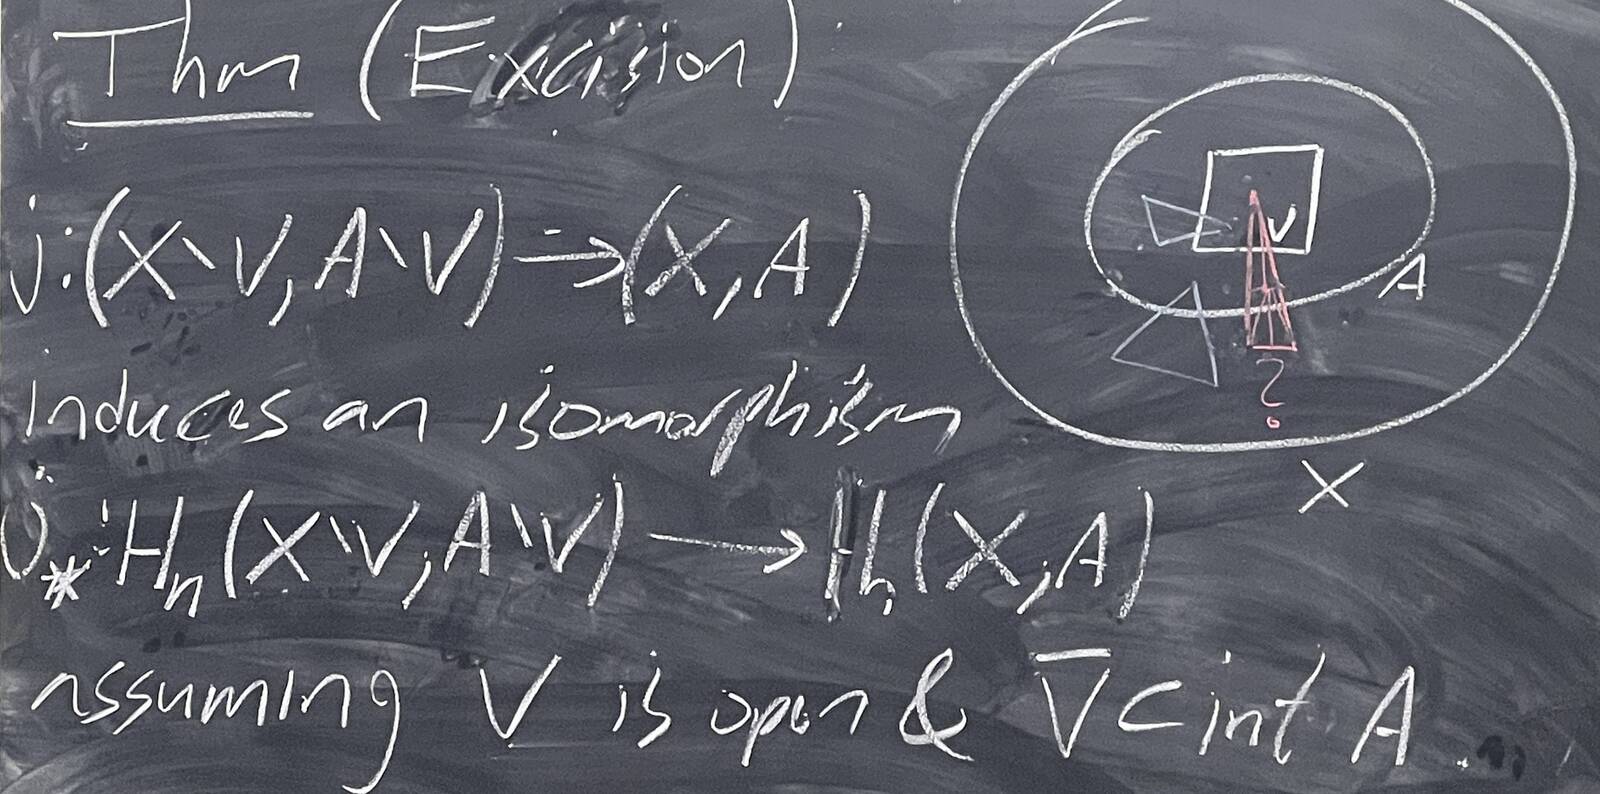 Thm (Excision)
j:(X∖V, A∖V) → (X, A)
induces an isomorphism
j_*: H_n(X∖V, A∖V) → H_n(X, A)
assuming V is open & V̅ ⊂ int A.
V
A
?
X